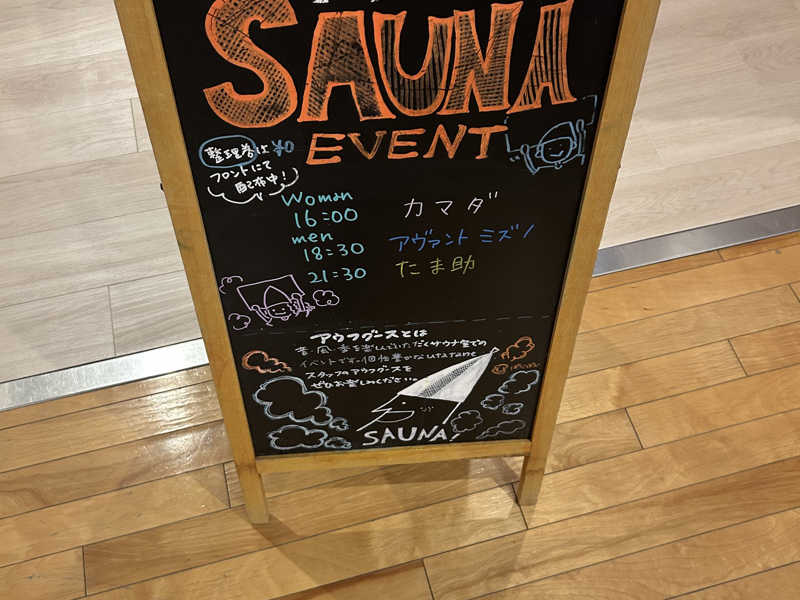 SAUNA
EVENT
整理券は¥0
フロントにて
配布中!
Woman
16:00 カマダ
men
18:30 アヴァントミズノ
21:30 たま助
アウフグースとは
音・風・香を楽しんでいただくサウナ室での
イベントです。個性豊かな
スタッフのアウフグースを
ぜひお楽しみください。
SAUNA!